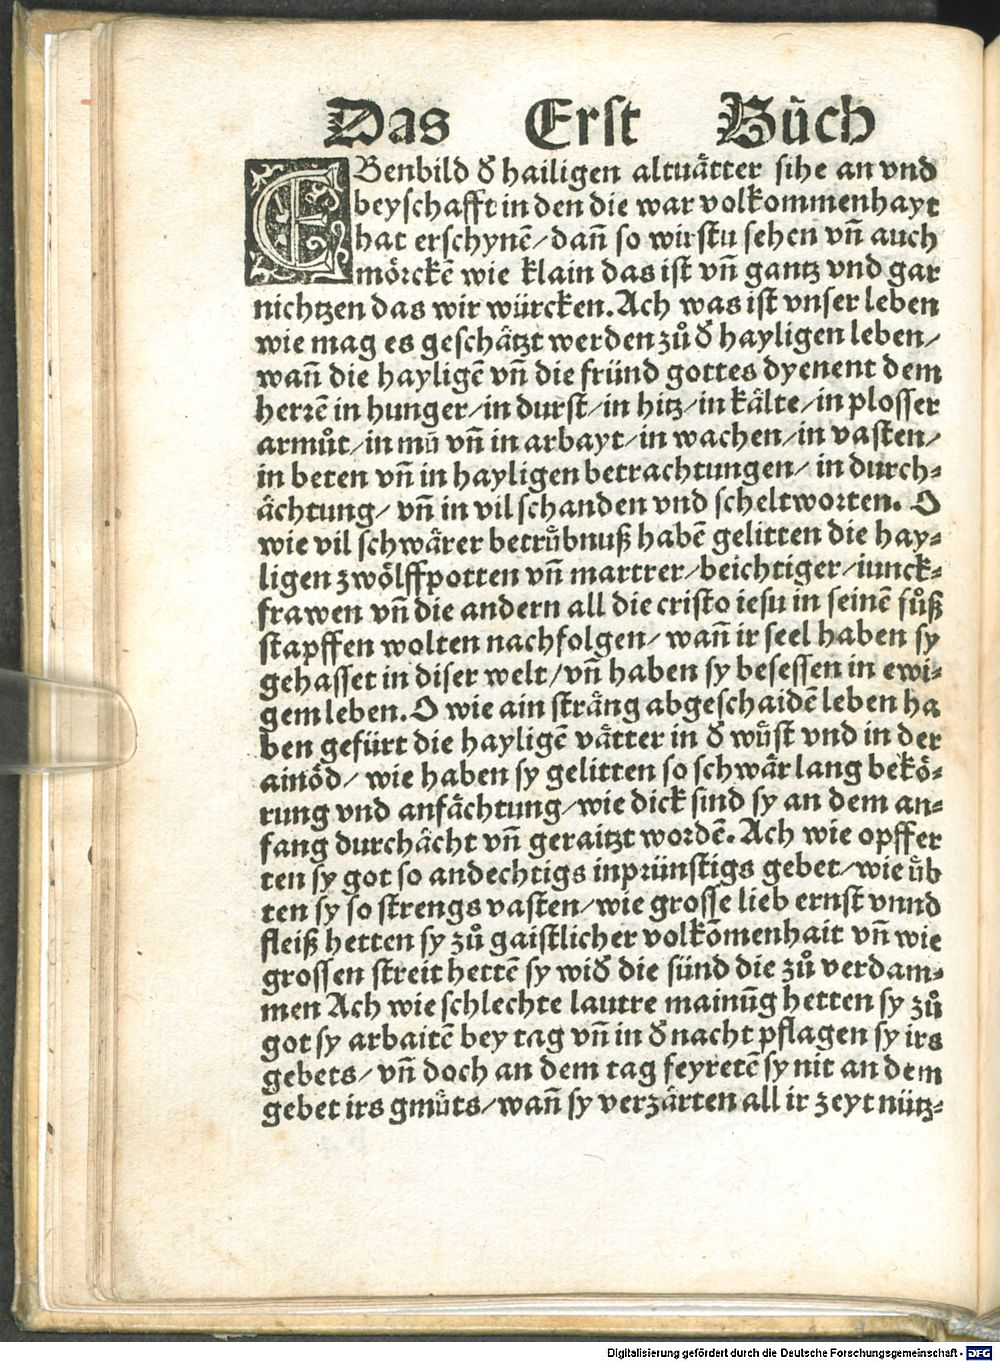 Das Erst Bůch
EBenbild d̕ hailigen altuåtter sihe an vnd
beyschafft in den die war volkommenhayt
hat erschynē/ dañ so wirstu sehen vñ auch
mörckē wie klain das ist vñ gantz vnd gar
nichtzen das wir würcken. Ach was ist vnser leben
wie mag es geschåtzt werden zů d̕ hayligen leben/
wañ die hayligē vñ die fründ gottes dyenent dem
herrē in hunger/in durst/in hitz/in kålte/in plosser
armůt/in mů vñ in arbayt/in wachen/in vasten/
in beten vñ in hayligen betrachtungen/ in durch-
åchtung/ vñ in vil schanden vnd scheltworten. O
wie vil schwårer betrůbnuß habē gelitten die hay-
ligen zwölffpotten vñ martrer/beichtiger/iunck-
frawen vñ die andern all die cristo iesu in seinē fůß
stapffen wolten nachfolgen/ wañ ir seel haben sy
gehasset in diser welt/vñ haben sy besessen in ewi-
gem leben. O wie ain strång abgeschaidē leben ha
ben gefürt die hayligē våtter in d̕ wůst vnd in der
ainöd/ wie haben sy gelitten so schwår lang bekö-
rung vnd anfåchtung/wie dick sind sy an dem an-
fang durchåcht vñ geraitzt wordē. Ach wie opffer
ten sy got so andechtigs inprünstigs gebet/wie ůb
ten sy so strengs vasten/wie grosse lieb ernst vnnd
fleiß hetten sy zů gaistlicher volkōmenhait vñ wie
grossen streit hettē sy wid̕ die sünd die zů verdam-
men Ach wie schlechte lautre mainūg hetten sy zů
got sy arbaitē bey tag vñ in d̕ nacht pflagen sy irs
gebets/ vñ doch an dem tag feyretē sy nit an dem
gebet irs gmůts/wañ sy verzårten all ir zeyt nütz-
Digitalisierung gefördert durch die Deutsche Forschungsgemeinschaft - DFG